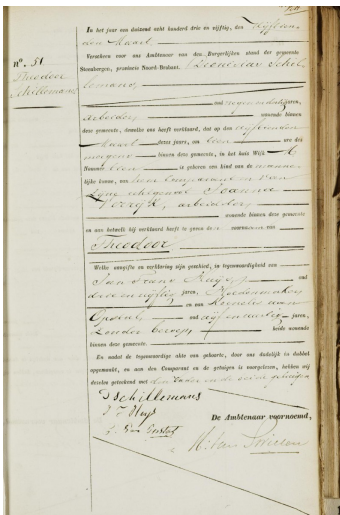 nº. 51
Theodoor
Schillemans
In het jaar een duizend acht honderd drie en vijftig, den vijftien
den Maart
Verscheen voor ons Ambtenaar van den Burgerlijken stand der gemeente
Steenbergen, provincie Noord-Braband. Leonardus Schil
lemans,
oud negen en dertig jaren,
arbeider, wonende binnen
deze gemeente, dewelke ons heeft verklaard, dat op den vijftienden
Maart dezes jaars, om een ure des
morgens binnen deze gemeente, in het huis Wijk A
Nummer is geboren een kind van de manne
lijke kunne, van hem Comparant en van
zijne echtgenoot Joanna
arbeidster,
wonende binnen deze gemeente
en aan hetwelk hij verklaard heeft te geven den voornaam van
Theodoor
Welke aangifte en verklaring zijn geschied, in tegenwoordigheid van
Jan Frans oud
drie en vijftig jaren, Hoedenmaker
en van Kornelis van
oud vijf en veertig jaren,
Zonder beroep beide wonende
binnen deze gemeente.
En nadat de tegenwoordige akte van geboorte, door ons dadelijk in dubbel
opgemaakt, en aan den Comparant en de getuigen is voorgelezen, hebben wij
dezelve geteekend met den Vader en de beide getuigen
D Schillemans
De Ambtenaar voornoemd,